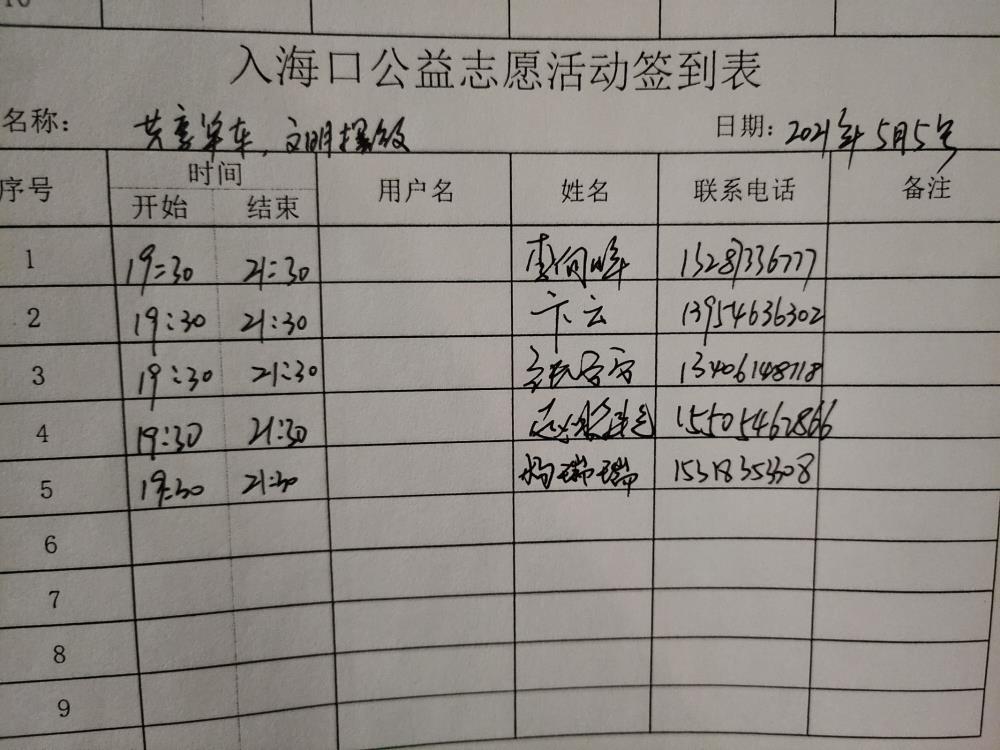 10
入海口公益志愿活动签到表
名称： 共享单车，文明摆放 日期：2021年5月5号
序号 时间 用户名 姓名 联系电话 备注
开始 结束
1 19:30 21:30 李向峰 15287336777
2 19:30 21:30 卞云 13954636302
3 19:30 21:30 13406148718
4 19:30 21:30 15505462866
5 19:30 21:30 杨瑞瑞 15318353308
6
7
8
9